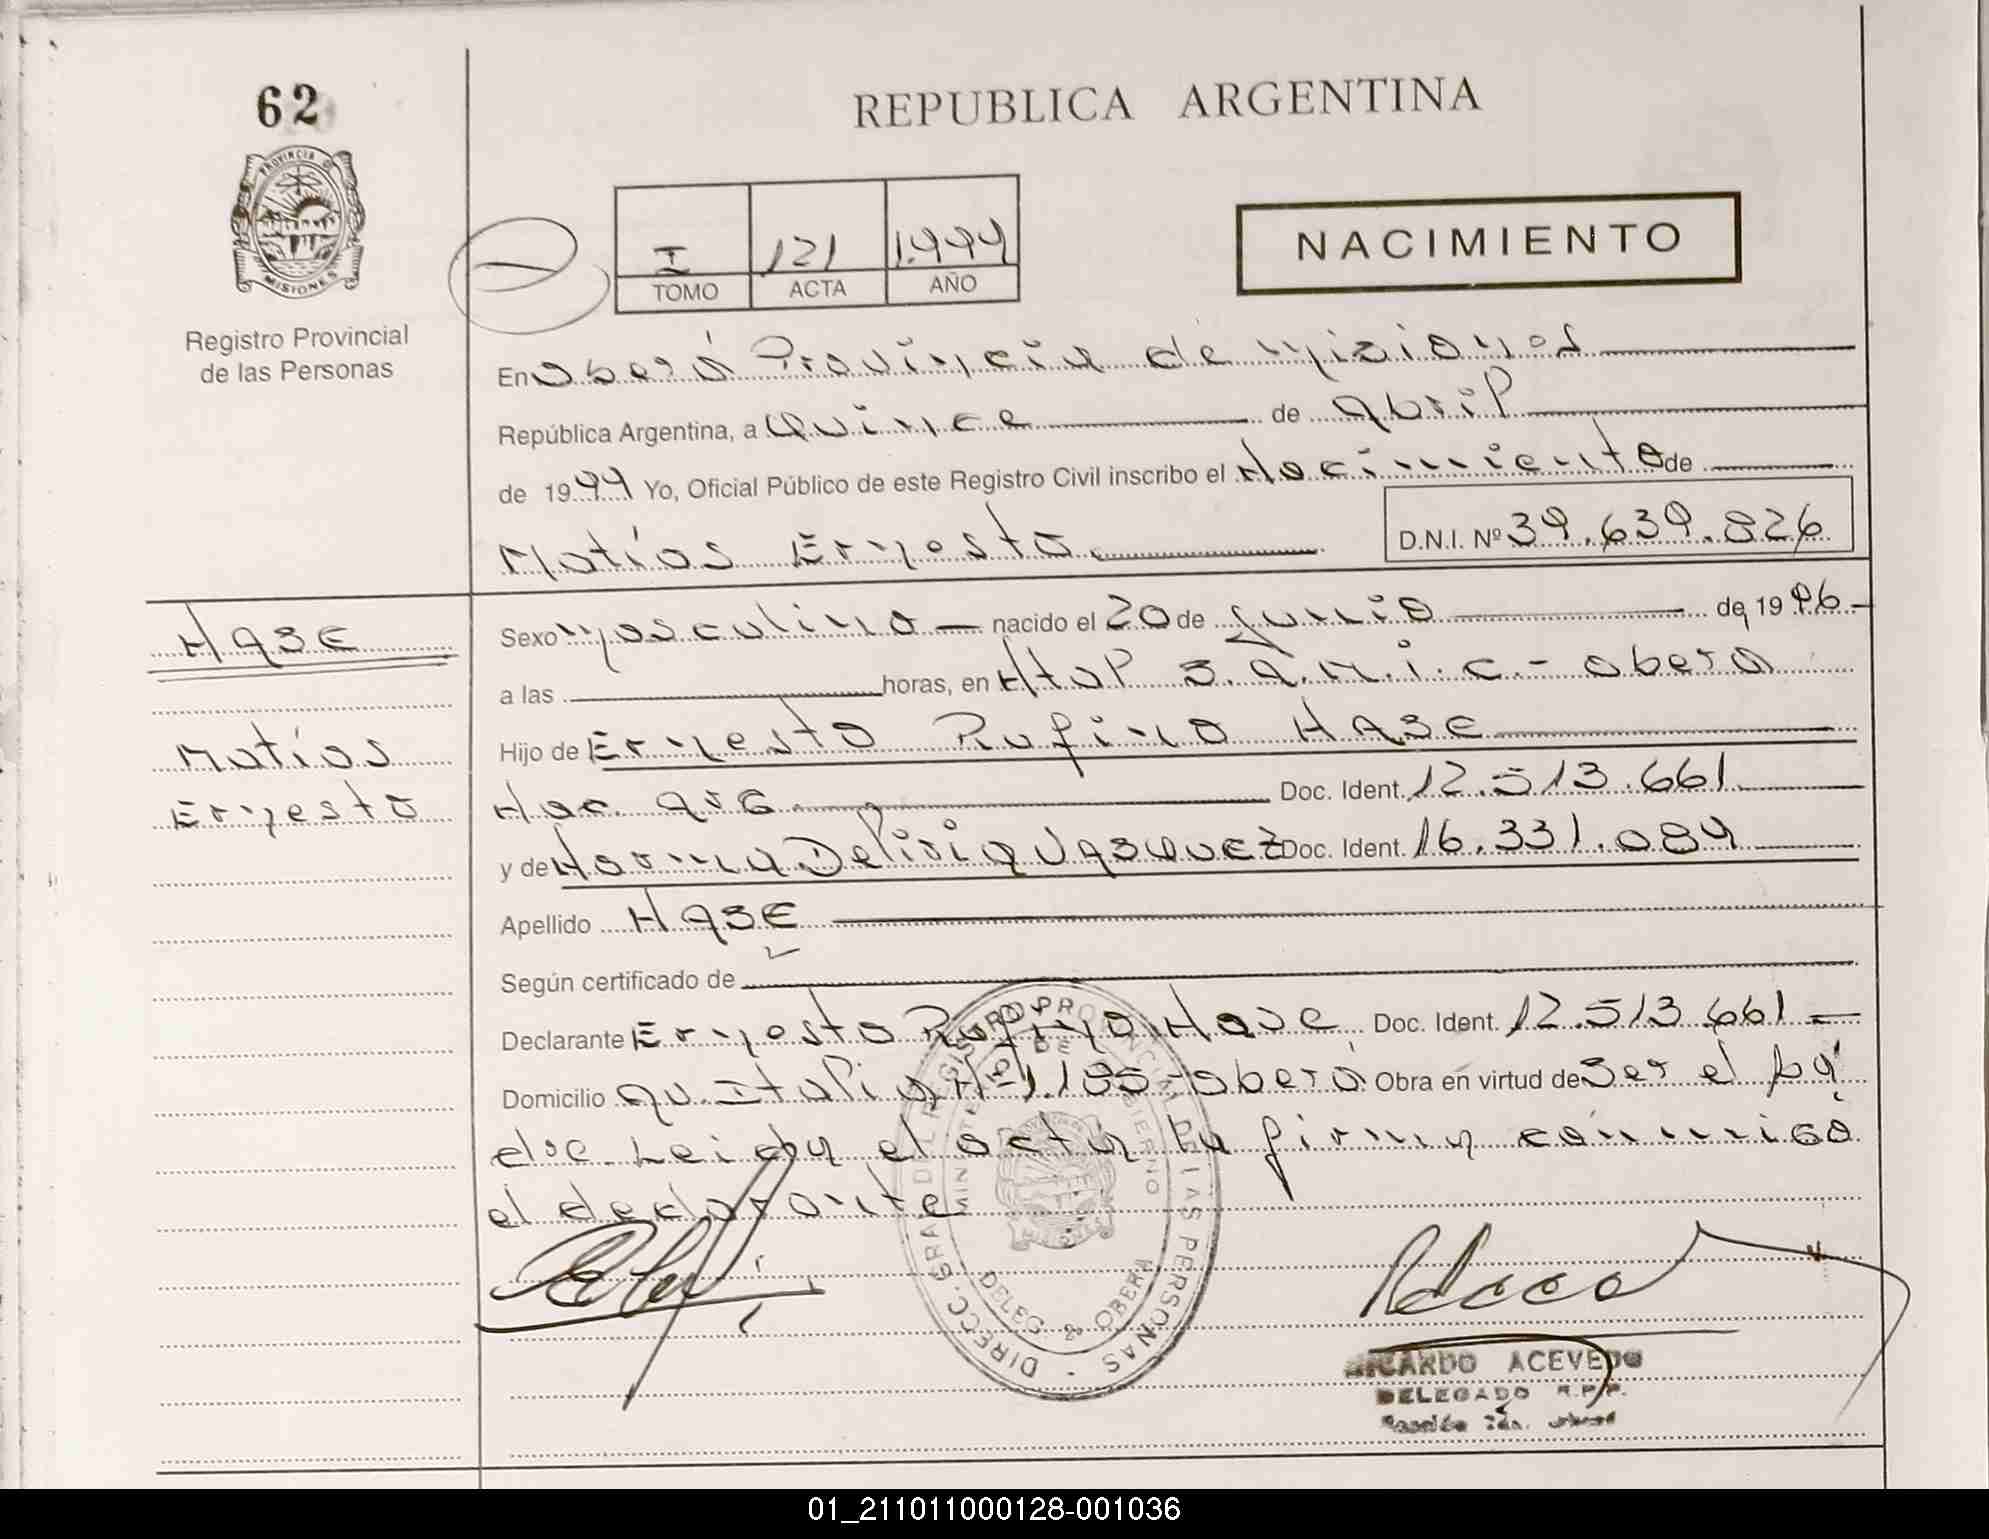 62
REPUBLICA ARGENTINA
PROVINCIA D MISIONES
Registro Provincial
de las Personas
I 121 1.999
TOMO ACTA AÑO
NACIMIENTO
En Oberá Provincia de Misiones
República Argentina, a Quince de abril
de 1999 Yo, Oficial Público de este Registro Civil inscribo el Nacimiento de
Matías Ernesto D.N.I. Nº 39.639.826
HASE
Matías
Ernesto
Sexo Masculino nacido el 20 de Junio de 1996
a las horas, en Htal S.A.M.I.C.- Oberá
Hijo de Ernesto Rufino HASE
Nac. arg Doc. Ident. 12.513.661
y de Norma Delisia VASQUEZ Doc. Ident. 16.331.084
Apellido HASE
Según certificado de
Declarante Ernesto Rufino Hase Doc. Ident. 12.513.661
Domicilio av. Italia Nº 1.185 - Oberá Obra en virtud de Ser el
Leida el acta la firma conmigo
el declarante
DIRECC. GRAL DEL REGISTRO PROVINCIAL DE LAS PERSONAS
MINISTERIO DE GOBIERNO
DELEG OBERA
RICARDO ACEVEDO
DELEGADO R.P.P.
01_211011000128-001036